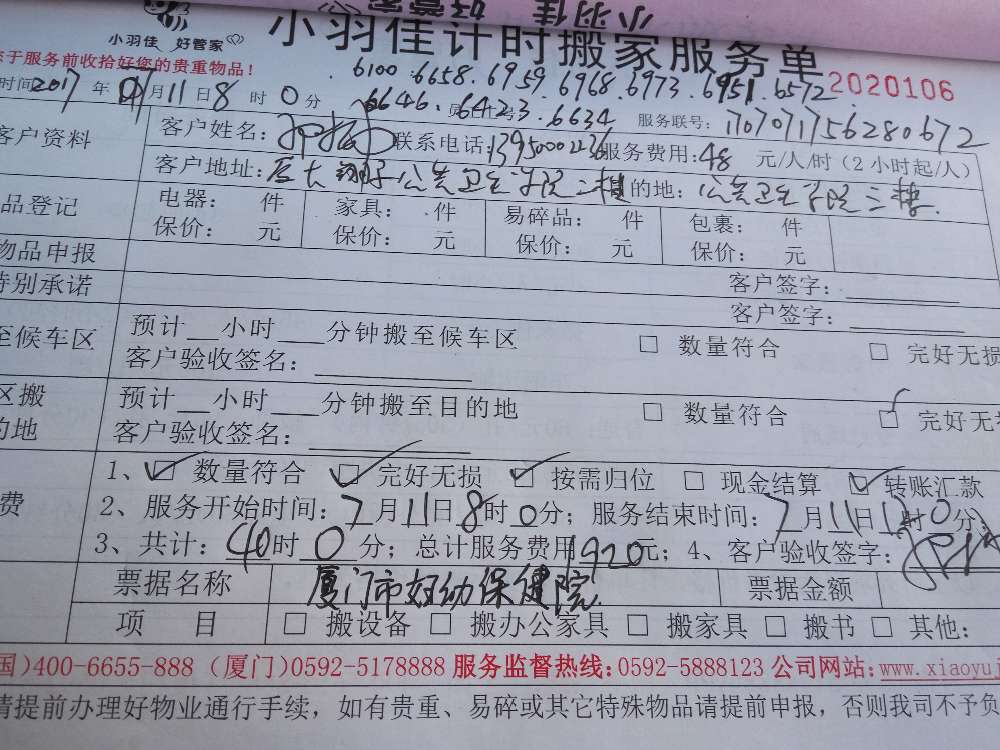 小羽佳 好管家
小羽佳
好管家
小羽佳计时搬家服务单
于服务前收拾好您的贵重物品！
6100 .6658.6959.6968.6973.6951.6572
2020106
时间2017年07月11日8时0分
6646. 6423.6634
服务联号：1707071756280672
客户资料
客户姓名：
联系电话：
服务费用：48元/人/时（2小时起/人）
客户地址：厦大翔安公共卫生学院二楼
的地：公共卫生学院三楼.
品登记
电器： 件 家具： 件 易碎品： 件 包裹： 件
保价： 元 保价： 元 保价： 元 保价： 元
物品申报
客户签字：
特别承诺
客户签字：
至候车区
预计 小时 分钟搬至候车区 □ 数量符合 □ 完好无损
客户验收签名：
区搬
的地
预计 小时 分钟搬至目的地 □ 数量符合 □ 完好无
客户验收签名：
费
1、☑ 数量符合 ☑ 完好无损 ☑ 按需归位 □ 现金结算 ☑ 转账汇款
2、服务开始时间：7月11日8时0分；服务结束时间：7月11日1时0分
3、共计：40时0分；总计服务费用1920元；4、客户验收签字：
票据名称 厦门市妇幼保健院 票据金额
项 目 □ 搬设备 □ 搬办公家具 □ 搬家具 □ 搬书 □ 其他：
国)400-6655-888（厦门)0592-5178888 服务监督热线：0592-5888123 公司网站：www.xiaoyuj
请提前办理好物业通行手续，如有贵重、易碎或其它特殊物品请提前申报，否则我司不予负